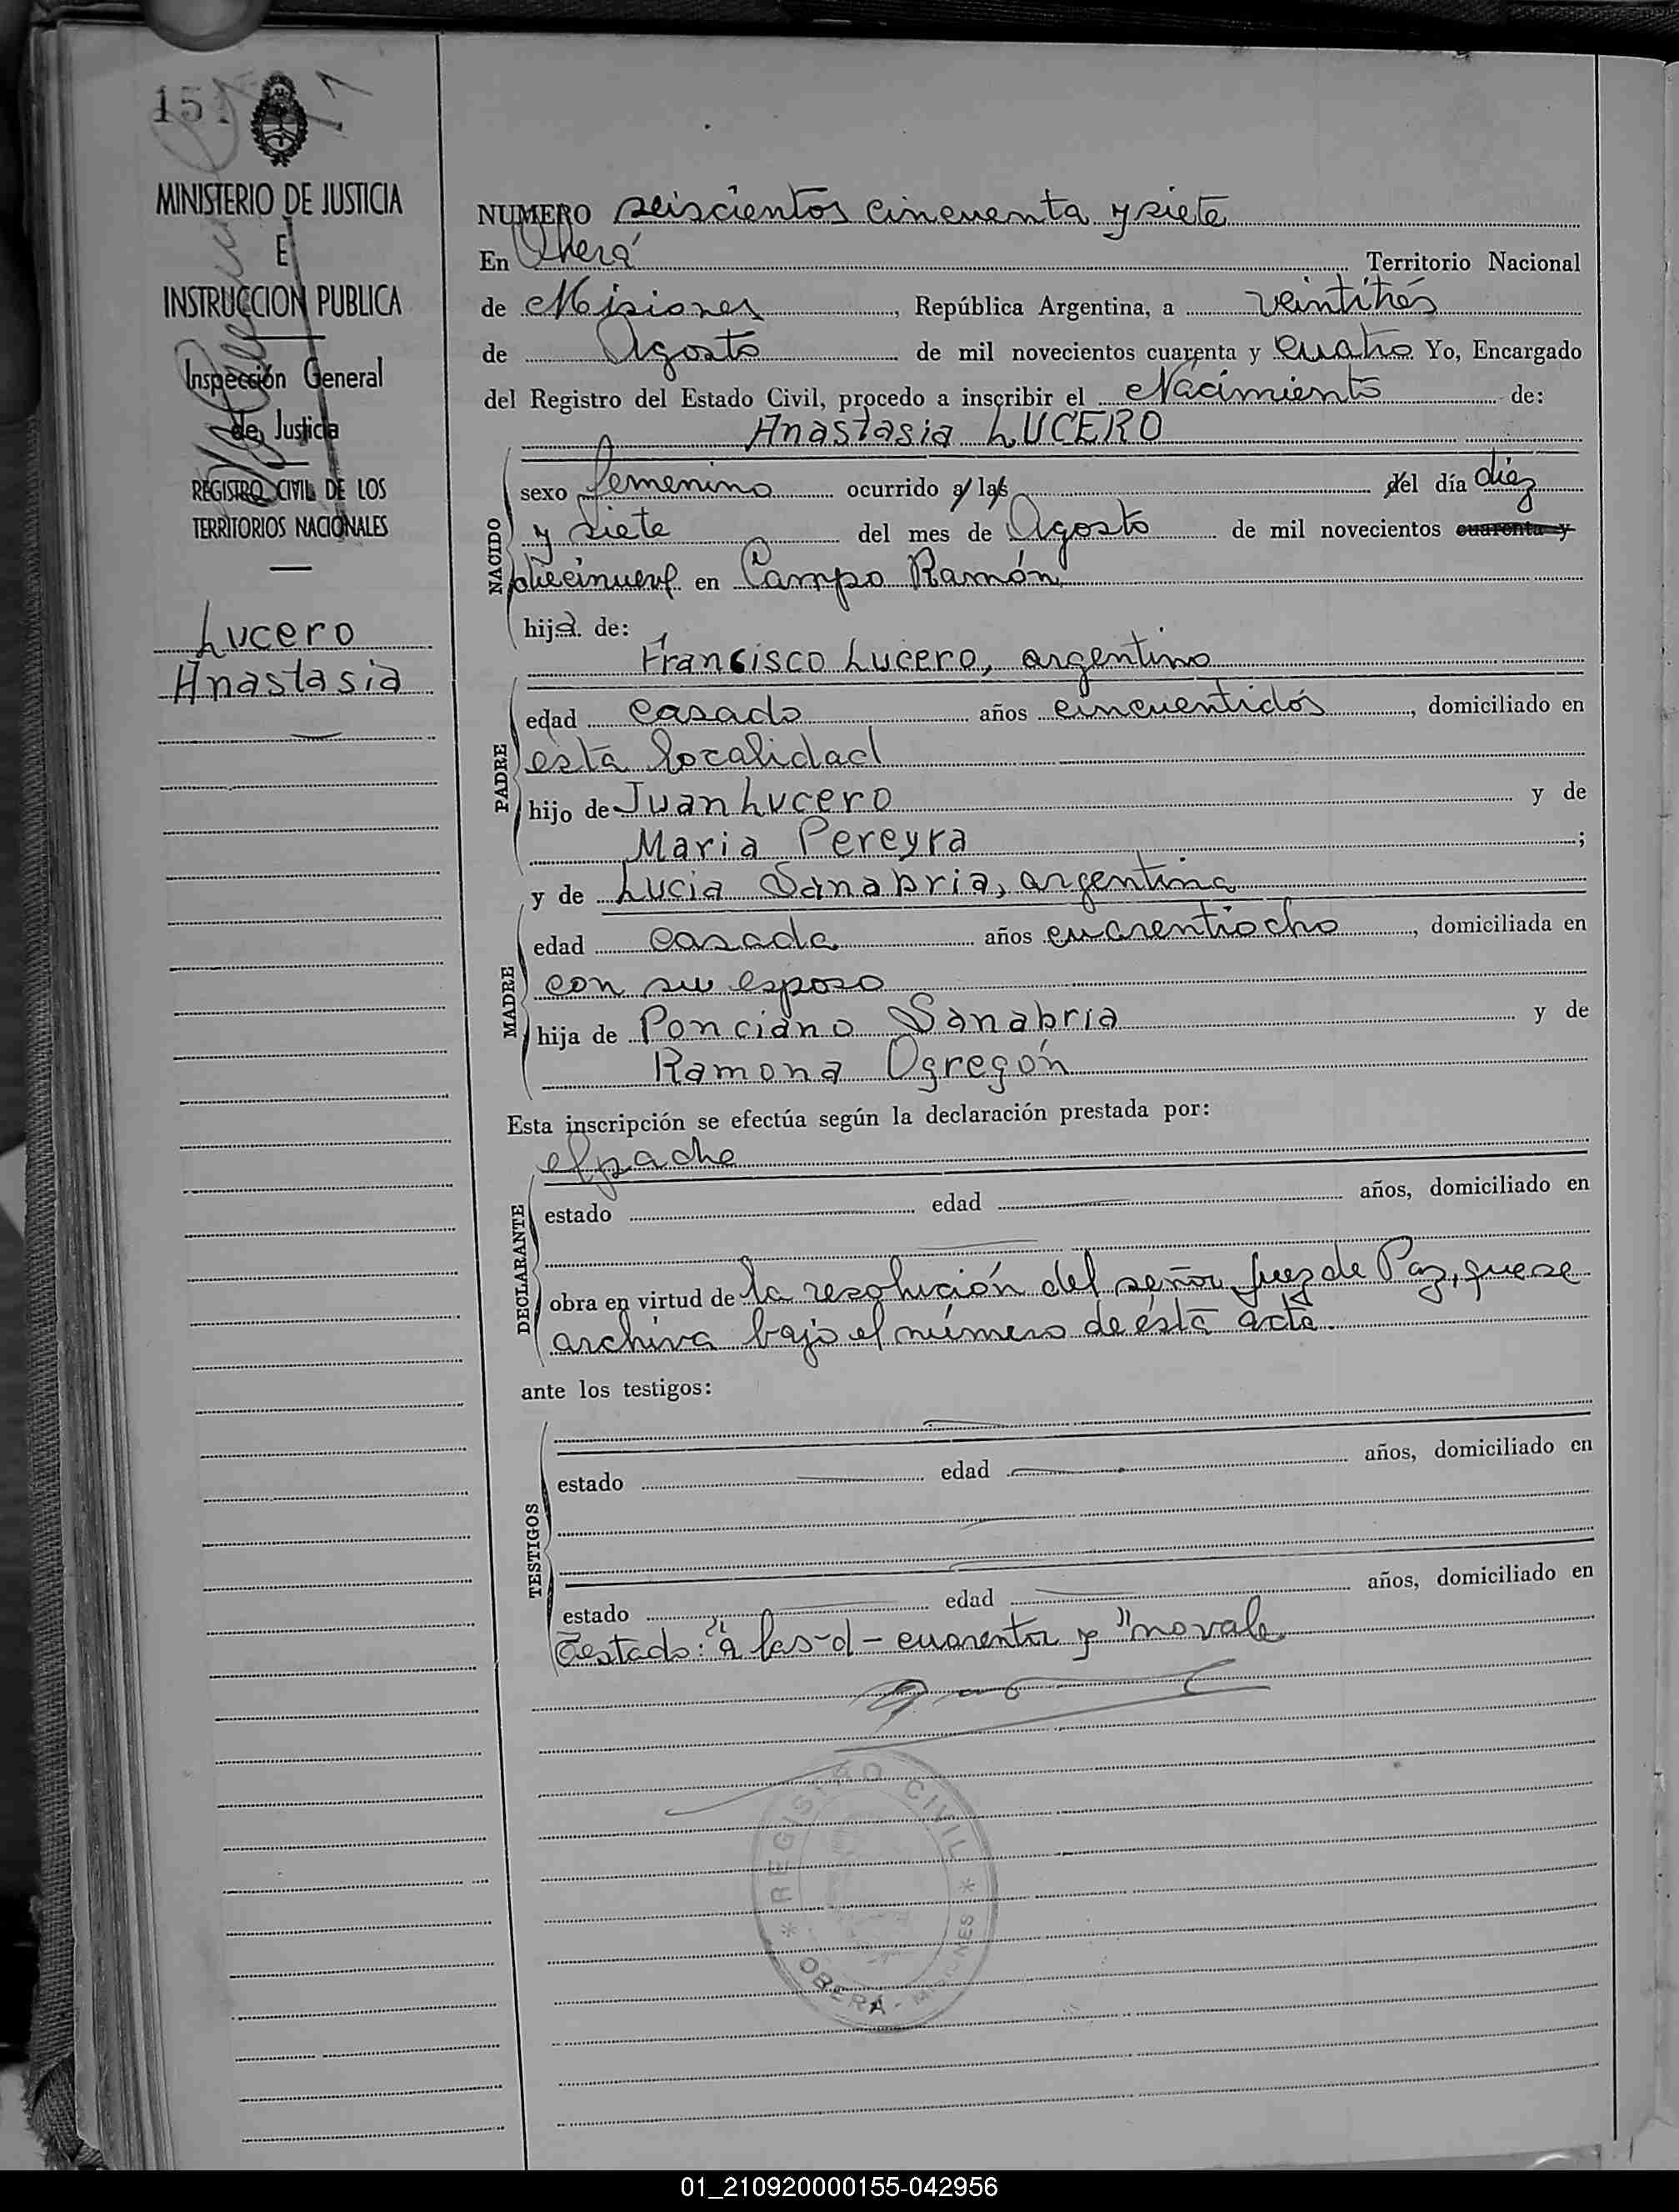 151
MINISTERIO DE JUSTICIA
E
INSTRUCCION PUBLICA
Inspección General
de Justicia
REGISTRO CIVIL DE LOS
TERRITORIOS NACIONALES
Lucero
Anastasia
NUMERO seiscientos cincuenta y siete
En Oberá Territorio Nacional
de Misiones, República Argentina, a veintitrés
de Agosto de mil novecientos cuarenta y cuatro Yo, Encargado
del Registro del Estado Civil, procedo a inscribir el Nacimiento de:
Anastasia LUCERO
NACIDO
sexo femenino ocurrido a las del día diez
y siete del mes de Agosto de mil novecientos cuarenta y
diecinueve en Campo Ramón
hija de:
Francisco Lucero, argentino
PADRE
edad casado años cincuentidós, domiciliado en
esta localidad
hijo de Juan Lucero y de
Maria Pereyra ;
y de Lucia Sanabria, argentina
MADRE
edad casada años cuarentiocho, domiciliada en
con su esposo
hija de Ponciano Sanabria y de
Ramona Ogregón
Esta inscripción se efectúa según la declaración prestada por:
el padre
DECLARANTE
estado edad años, domiciliado en
obra en virtud de la resolución del señor Juez de Paz, que se
archiva bajo el número de ésta acta.
ante los testigos:
TESTIGOS
estado edad años, domiciliado en
estado edad años, domiciliado en
Testado: "a las-d- cuarenta y" no vale
REGISTRO CIVIL
OBERÁ - MISIONES
01_210920000155-042956